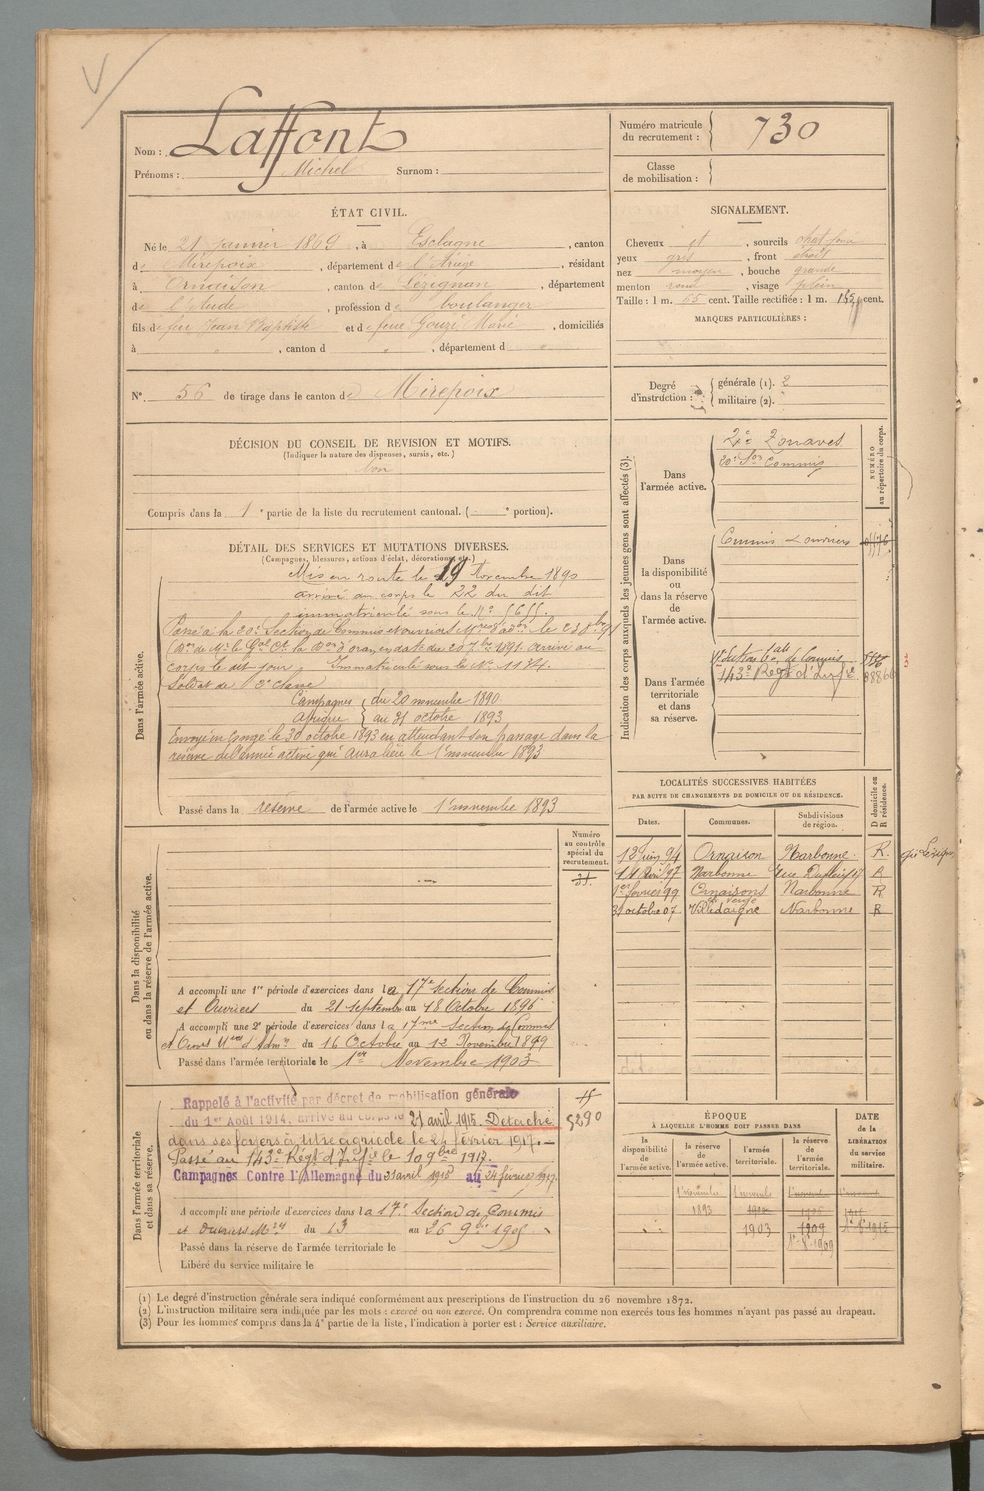 Nom : Laffont
Prénoms : Michel Surnom :
Numéro matricule du recrutement : 730
Classe de mobilisation :
ÉTAT CIVIL.
Né le 21 janvier 1869, à Esclagne, canton
de Mirepoix, département de l'Ariège, résidant
à Ornaison, canton de Lézignan, département
de l'Aude, profession de boulanger
fils de feu Jean Baptiste et de feue Gouzé Marie, domiciliés
à " , canton d " , département d "
N° 56 de tirage dans le canton de Mirepoix
SIGNALEMENT.
Cheveux et , sourcils chat. foncé
yeux gris , front étroit
nez moyen , bouche grande
menton rond , visage plein
Taille : 1 m. 55 cent. Taille rectifiée : 1 m. cent.
MARQUES PARTICULIÈRES :
Degré d'instruction : générale (1). 2
militaire (2).
DÉCISION DU CONSEIL DE REVISION ET MOTIFS.
(Indiquer la nature des dispenses, sursis, etc.)
Bon
Compris dans la 1e partie de la liste du recrutement cantonal. ( e portion).
DÉTAIL DES SERVICES ET MUTATIONS DIVERSES.
(Campagnes, blessures, actions d'éclat, décorations, etc.)
Dans l'armée active.
Mis en route le 19 Novembre 1890
arrivé au corps le 22 du dit
immatriculé sous le N°
Passé à la 20e Section de Commis et ouvriers
corps le dit jour, Immatriculé sous le N° 1184.
Soldat de 2e classe
Campagnes du 20 novembre 1890
Afrique au 31 octobre 1893
Envoyé en congé le 30 octobre 1893 en attendant son passage dans la
réserve de l'armée active qui aura lieu le 1er novembre 1893
Passé dans la réserve de l'armée active le 1er novembre 1893
Indication des corps auxquels les jeunes gens sont affectés (3).
NUMÉRO au répertoire du corps.
Dans l'armée active.
2e Zouaves
20e Son Commis
Dans la disponibilité ou dans la réserve de l'armée active.
Commis & ouvriers
Dans l'armée territoriale et dans sa réserve.
143e Régt d'Infie
LOCALITÉS SUCCESSIVES HABITÉES
PAR SUITE DE CHANGEMENTS DE DOMICILE OU DE RÉSIDENCE.
Dates. Communes. Subdivisions de région. D domicile ou R résidence.
12 juin 94 Ornaison Narbonne. R.
Avril 97 Narbonne R
1er février 99 Ornaisons Narbonne R
31 octobre 07 Villedaigne Narbonne R
Dans la disponibilité ou dans la réserve de l'armée active.
Numéro au contrôle spécial du recrutement.
A accompli une 1re période d'exercices dans la 17e section de Commis
et Ouvriers du 21 septembre au 18 Octobre 1896
A accompli une 2e période d'exercices dans la 17me Section de Commis
du 16 Octobre au 12 Novembre 1899
Passé dans l'armée territoriale le 1er Novembre 1903
Dans l'armée territoriale et dans sa réserve.
Rappelé à l'activité par décret de mobilisation générale
du 1er Août 1914, arrivé au corps le 21 avril 1915. Détaché
dans ses foyers à titre agricole le 24 février 1917.
Passé au 143e Régt d'Infie le 10 9bre 1917.
Campagnes Contre l'Allemagne du 21 avril 1915 au 24 février 1917.
5290
A accompli une période d'exercices dans la 17e Section de Commis
et ouvriers du 13 au 26 9bre 1905
Passé dans la réserve de l'armée territoriale le
Libéré du service militaire le
ÉPOQUE À LAQUELLE L'HOMME DOIT PASSER DANS
la disponibilité de l'armée active. la réserve de l'armée active. l'armée territoriale. la réserve de l'armée territoriale.
DATE de la LIBÉRATION du service militaire.
1893 1903 1909
(1) Le degré d'instruction générale sera indiqué conformément aux prescriptions de l'instruction du 26 novembre 1872.
(2) L'instruction militaire sera indiquée par les mots : exercé ou non exercé. On comprendra comme non exercés tous les hommes n'ayant pas passé au drapeau.
(3) Pour les hommes compris dans la 4e partie de la liste, l'indication à porter est : Service auxiliaire.